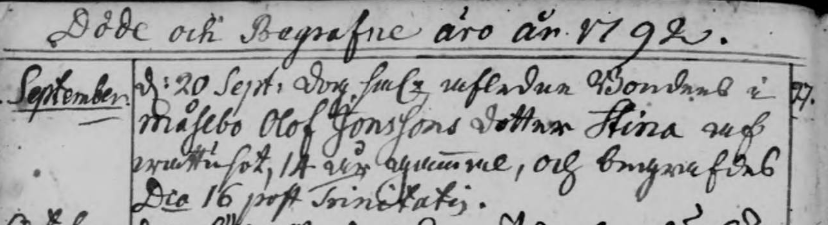 Döde och Begrafne äro år 1792.
September. d: 20 Sept: dog sal. afledne Bondens i 27.
Måsebo Olof Jonssons dotter Stina af
rötusot, 14 år gammal, och begrafdes
Dca 16 post Trinitatis.